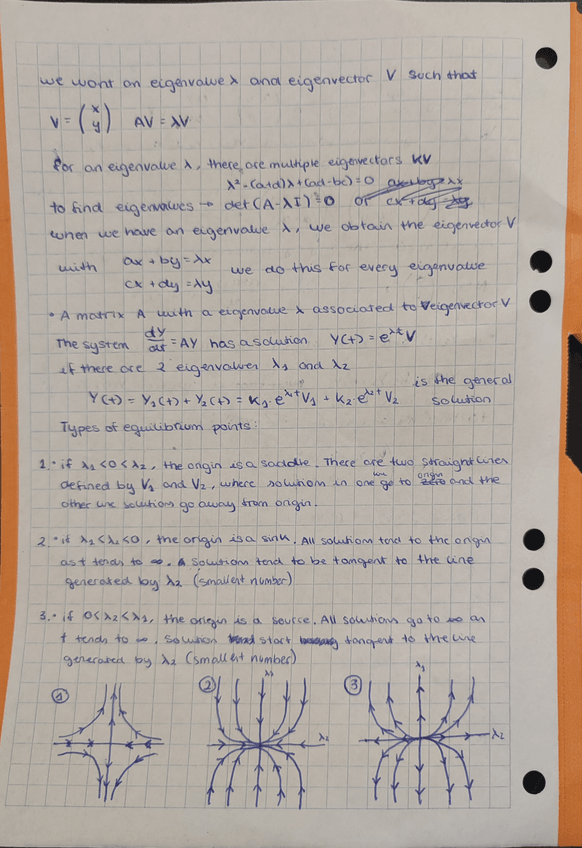 we want an eigenvalue λ and eigenvector V such that
V = (x y) AV = λV
For an eigenvalue λ, there are multiple eigenvectors KV
λ² - (a+d)λ + (ad-bc) = 0 ax + by = λx
to find eigenvalues → det(A-λI) = 0 or cx + dy = λy
when we have an eigenvalue λ, we obtain the eigenvector V
with ax + by = λx we do this for every eigenvalue
cx + dy = λy
• A matrix A with a eigenvalue λ associated to eigenvector V
The system dY/dt = AY has a solution Y(t) = e^λt V
if there are 2 eigenvalues λ1 and λ2
Y(t) = Y1(t) + Y2(t) = K1·e^λ1t V1 + K2·e^λ2t V2 is the general solution
Types of equilibrium points:
1.• if λ1 < 0 < λ2, the origin is a saddle. There are two straight lines
defined by V1 and V2, where solutions in one line go to zero origin and the
other line solutions go away from origin.
2.• if λ1 < λ2 < 0, the origin is a sink. All solutions tend to the origin
as t tends to ∞. A solution tend to be tangent to the line
generated by λ2 (smallest number)
3.• if 0 < λ2 < λ1, the origin is a source. All solutions go to ∞ as
t tends to ∞. Solution start tangent to the line
generated by λ2 (smallest number)
1 2 λ1 λ2 3 λ1 λ2